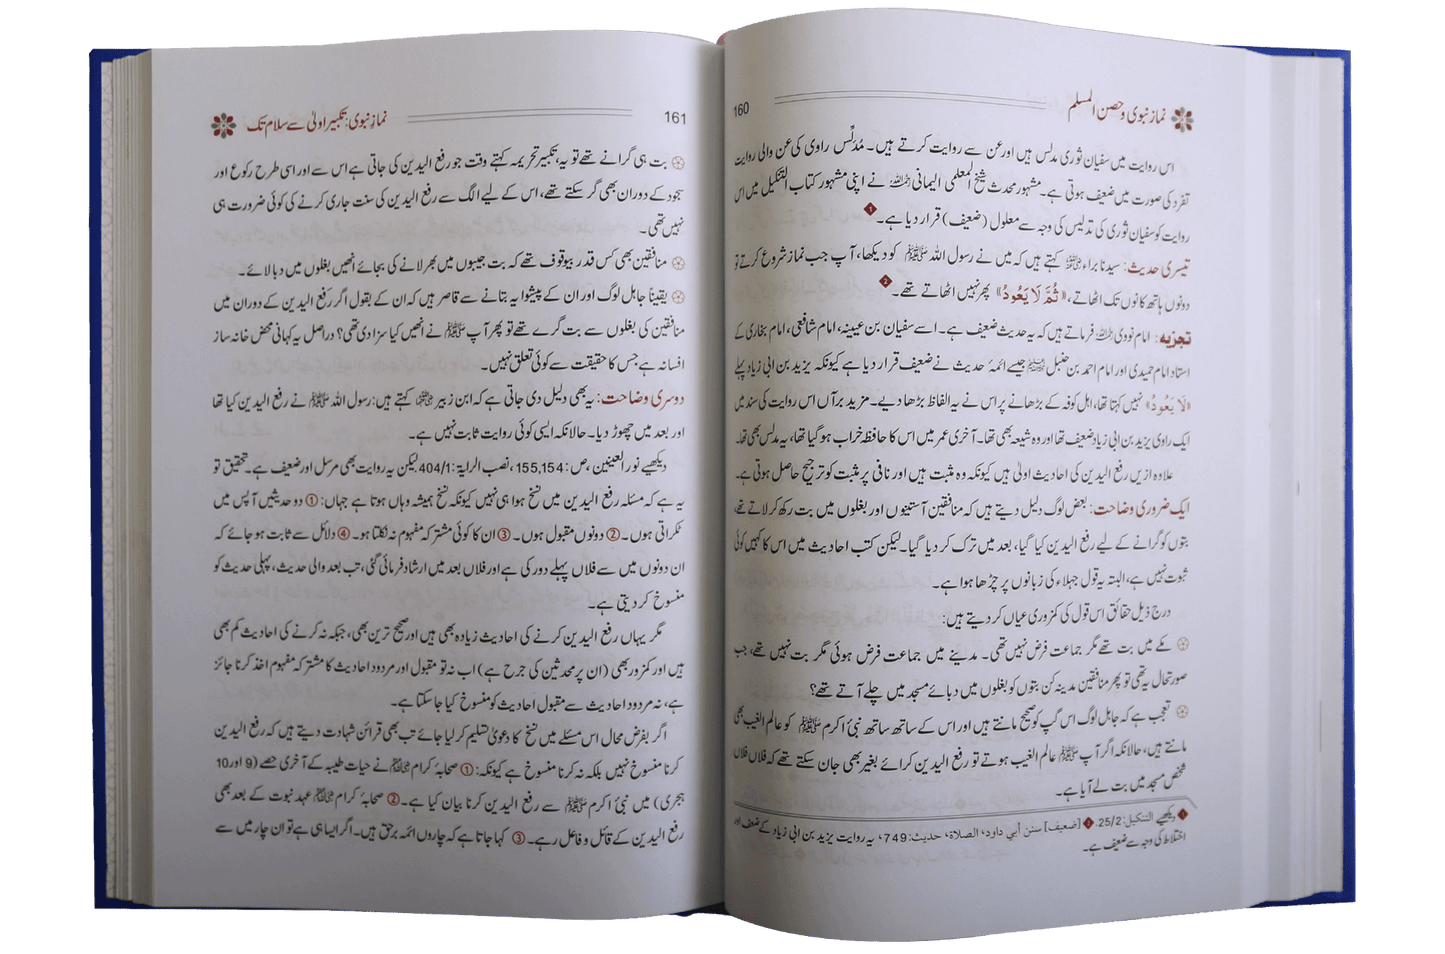 نماز نبوی و حصن المسلم
160
اس روایت میں سفیان ثوری مدلس ہیں اور عن سے روایت کرتے ہیں۔ مُدَلِّس راوی کی عن والی روایت
تفرد کی صورت میں ضعیف ہوتی ہے۔ مشہور محدث شیخ المعلمی الیمانی رحمہ اللہ نے اپنی مشہور کتاب التنکیل میں اس
روایت کو سفیان ثوری کی تدلیس کی وجہ سے معلول (ضعیف) قرار دیا ہے۔ 1
تیسری حدیث: سیدنا براء رضی اللہ عنہ کہتے ہیں کہ میں نے رسول اللہ ﷺ کو دیکھا، آپ جب نماز شروع کرتے تو
دونوں ہاتھ کانوں تک اٹھاتے، «ثُمَّ لَا يَعُودُ» پھر نہیں اٹھاتے تھے۔ 2
تجزیہ: امام نووی رحمہ اللہ فرماتے ہیں کہ یہ حدیث ضعیف ہے۔ اسے سفیان بن عیینہ، امام شافعی، امام بخاری کے
استاد امام حمیدی اور امام احمد بن حنبل جیسے ائمۂ حدیث نے ضعیف قرار دیا ہے کیونکہ یزید بن ابی زیاد پہلے
«لَا يَعُودُ» نہیں کہتا تھا، اہل کوفہ کے بڑھانے پر اس نے یہ الفاظ بڑھا دیے۔ مزید برآں اس روایت کی سند میں
ایک راوی یزید بن ابی زیاد ضعیف تھا اور وہ شیعہ بھی تھا۔ آخری عمر میں اس کا حافظہ خراب ہو گیا تھا، یہ مدلس بھی تھا۔
علاوہ ازیں رفع الیدین کی احادیث اولیٰ ہیں کیونکہ وہ مثبت ہیں اور نافی پر مثبت کو ترجیح حاصل ہوتی ہے۔
ایک ضروری وضاحت: بعض لوگ دلیل دیتے ہیں کہ منافقین آستینوں اور بغلوں میں بت رکھ کر لاتے تھے،
بتوں کو گرانے کے لیے رفع الیدین کیا گیا، بعد میں ترک کر دیا گیا۔ لیکن کتب احادیث میں اس کا کہیں کوئی
ثبوت نہیں ہے، البتہ یہ قول جہلاء کی زبانوں پر چڑھا ہوا ہے۔
درج ذیل حقائق اس قول کی کمزوری عیاں کر دیتے ہیں:
مکے میں بت تھے مگر جماعت فرض نہیں تھی۔ مدینے میں جماعت فرض ہوئی مگر بت نہیں تھے، جب
صورتحال یہ تھی تو پھر منافقین مدینہ کن بتوں کو بغلوں میں دبائے مسجد میں چلے آتے تھے؟
تعجب ہے کہ جاہل لوگ اس گپ کو صحیح مانتے ہیں اور اس کے ساتھ ساتھ نبیٔ اکرم ﷺ کو عالم الغیب بھی
مانتے ہیں، حالانکہ اگر آپ ﷺ عالم الغیب ہوتے تو رفع الیدین کرائے بغیر بھی جان سکتے تھے کہ فلاں فلاں
شخص مسجد میں بت لے آیا ہے۔
1 دیکھیے التنکیل: 25/2. 2 [ضعیف] سنن أبي داود، الصلاة، حدیث: 749، یہ روایت یزید بن ابی زیاد کے ضعف اور
اختلاط کی وجہ سے ضعیف ہے۔
161
نماز نبوی: تکبیر اولیٰ سے سلام تک
بت ہی گرانے تھے تو یہ، تکبیر تحریمہ کہتے وقت جو رفع الیدین کی جاتی ہے اس سے اور اسی طرح رکوع اور
سجود کے دوران بھی گر سکتے تھے، اس کے لیے الگ سے رفع الیدین کی سنت جاری کرنے کی کوئی ضرورت ہی
نہیں تھی۔
منافقین بھی کس قدر بیوقوف تھے کہ بت جیبوں میں بھر لانے کی بجائے انھیں بغلوں میں دبا لائے۔
یقیناً جاہل لوگ اور ان کے پیشوا یہ بتانے سے قاصر ہیں کہ ان کے بقول اگر رفع الیدین کے دوران میں
منافقین کی بغلوں سے بت گرے تھے تو پھر آپ ﷺ نے انھیں کیا سزا دی تھی؟ دراصل یہ کہانی محض خانہ ساز
افسانہ ہے جس کا حقیقت سے کوئی تعلق نہیں۔
دوسری وضاحت: یہ بھی دلیل دی جاتی ہے کہ ابن زبیر رضی اللہ عنہ کہتے ہیں: رسول اللہ ﷺ نے رفع الیدین کیا تھا
اور بعد میں چھوڑ دیا۔ حالانکہ ایسی کوئی روایت ثابت نہیں ہے۔
دیکھیے نور العینین، ص: 155,154، نصب الرایۃ: 404/1، لیکن یہ روایت بھی مرسل اور ضعیف ہے۔ تحقیق تو
یہ ہے کہ مسئلہ رفع الیدین میں نسخ ہوا ہی نہیں کیونکہ نسخ ہمیشہ وہاں ہوتا ہے جہاں: ① دو حدیثیں آپس میں
ٹکراتی ہوں۔ ② دونوں مقبول ہوں۔ ③ ان کا کوئی مشترکہ مفہوم نہ نکلتا ہو۔ ④ دلائل سے ثابت ہو جائے کہ
ان دونوں میں سے فلاں پہلے دور کی ہے اور فلاں بعد میں ارشاد فرمائی گئی، تب بعد والی حدیث، پہلی حدیث کو
منسوخ کر دیتی ہے۔
مگر یہاں رفع الیدین کرنے کی احادیث زیادہ بھی ہیں اور صحیح ترین بھی، جبکہ نہ کرنے کی احادیث کم بھی
ہیں اور کمزور بھی (ان پر محدثین کی جرح ہے) اب نہ تو مقبول اور مردود احادیث کا مشترکہ مفہوم اخذ کرنا جائز
ہے، نہ مردود احادیث سے مقبول احادیث کو منسوخ کیا جا سکتا ہے۔
اگر بفرض محال اس مسئلے میں نسخ کا دعویٰ تسلیم کر لیا جائے تب بھی قرائن شہادت دیتے ہیں کہ رفع الیدین
کرنا منسوخ نہیں بلکہ نہ کرنا منسوخ ہے کیونکہ: ① صحابۂ کرام نے حیات طیبہ کے آخری حصے (9 اور 10
ہجری) میں نبیٔ اکرم ﷺ سے رفع الیدین کرنا بیان کیا ہے۔ ② صحابۂ کرام عہد نبوت کے بعد بھی
رفع الیدین کے قائل و فاعل رہے۔ ③ کہا جاتا ہے کہ چاروں ائمہ برحق ہیں۔ اگر ایسا ہی ہے تو ان چار میں سے